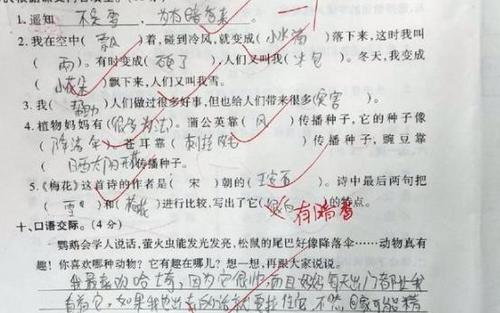 1. 遥知 不是雪 , 为有暗香来 。
2. 我在空中( 飘 )着,碰到冷风,就变成( 小水滴 )落下来,这时我叫
( 雨 )。有时变成( )人们又叫我( 冰包 )。冬天,我变成
( 小花朵 )飘下来,人们又叫我雪。
3. 我( 帮助 )人们做过很多好事,但也给人们带来很多( 灾害 )
4. 植物妈妈有( 很多办法 )。蒲公英靠( 风 )传播种子,它的种子像
( 降落伞 )苍耳靠( 刺挂 )传播种子,豌豆靠
( 晒太阳 传播种子。
5.《梅花》这首诗的作者是( 宋 )朝的( 王安石 )。诗中最后两句把
( 雪 )和( 梅花 )进行比较,写出了它( )的特点。
有暗香
十、口语交际。(4 分)
鹦鹉会学人说话,萤火虫能发光发亮,松鼠的尾巴好像降落伞……动物真有
趣!你喜欢哪种动物?它有趣在哪儿?想一想,再跟大家说说。
我最喜欢哈士奇,因为它很帅,而且 每天出门都让我
看着它,如果我 出去的话就要拉住它,不然